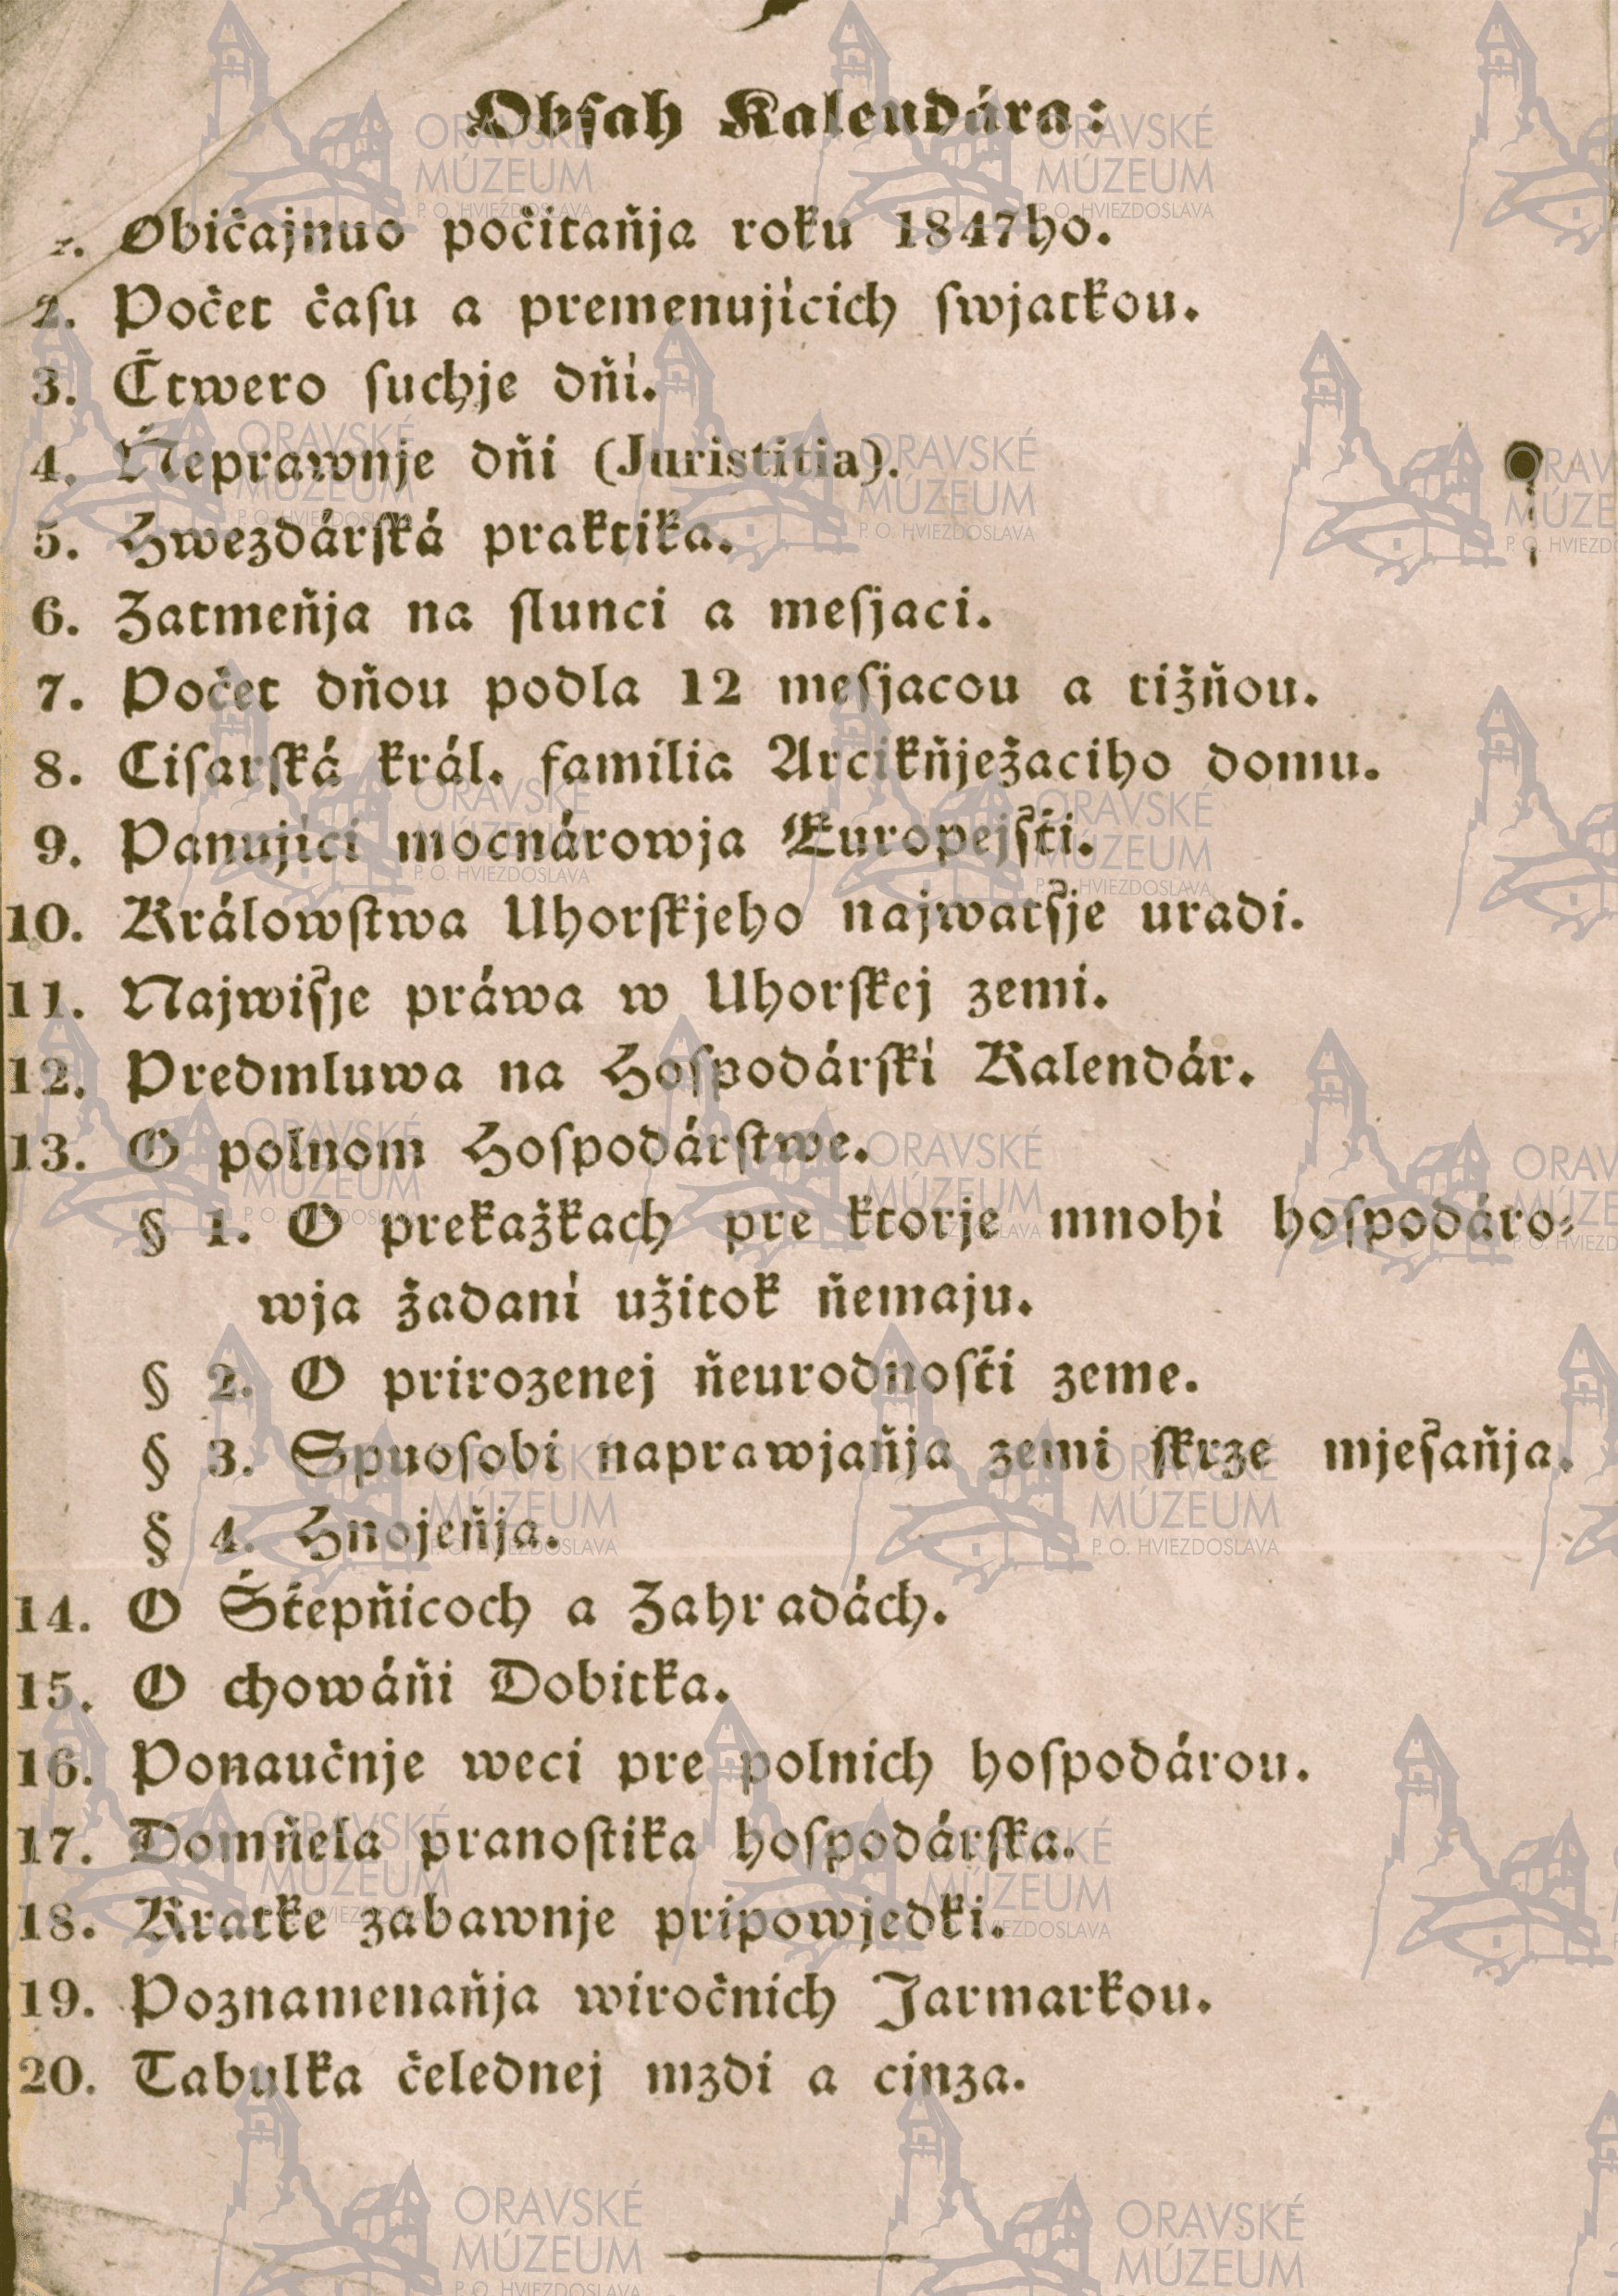 Obsah Kalendára:
1. Običajnuo počitaňja roku 1847ho.
2. Počet času a premenujícich swjatkou.
3. Čtwero suchje dňí.
4. Ňeprawnje dňi (Juristitia).
5. Hwezdárská praktika.
6. Zatmeňja na slunci a mesjaci.
7. Počet dňou podla 12 mesjacou a tižňou.
8. Cisarská král. familia Arcikňježaciho domu.
9. Panujíci mocnárowja Europejšti.
10. Králowstwa Uhorskjeho najwatšje uradi.
11. Najwišje práwa w Uhorskej zemi.
12. Predmluwa na Hospodárskí Kalendár.
13. O polnom Hospodárstwe.
§ 1. O prekažkach pre ktorje mnohí hospodáro-
wja žadaní užitok ňemaju.
§ 2. O prirozenej ňeurodnosťi zeme.
§ 3. Spuosobi naprawjaňja zemi skrze mješaňja.
§ 4. Hnojeňja.
14. O Šťepňicoch a Zahradách.
15. O chowáňi Dobitka.
16. Ponaučnje weci pre polních hospodárou.
17. Domňela pranostika hospodárska.
18. Kratke zabawnje pripowjedki.
19. Poznamenaňja wiročních Jarmarkou.
20. Tabulka čelednej mzdi a cinza.
ORAVSKÉ
MÚZEUM
P. O. HVIEZDOSLAVA